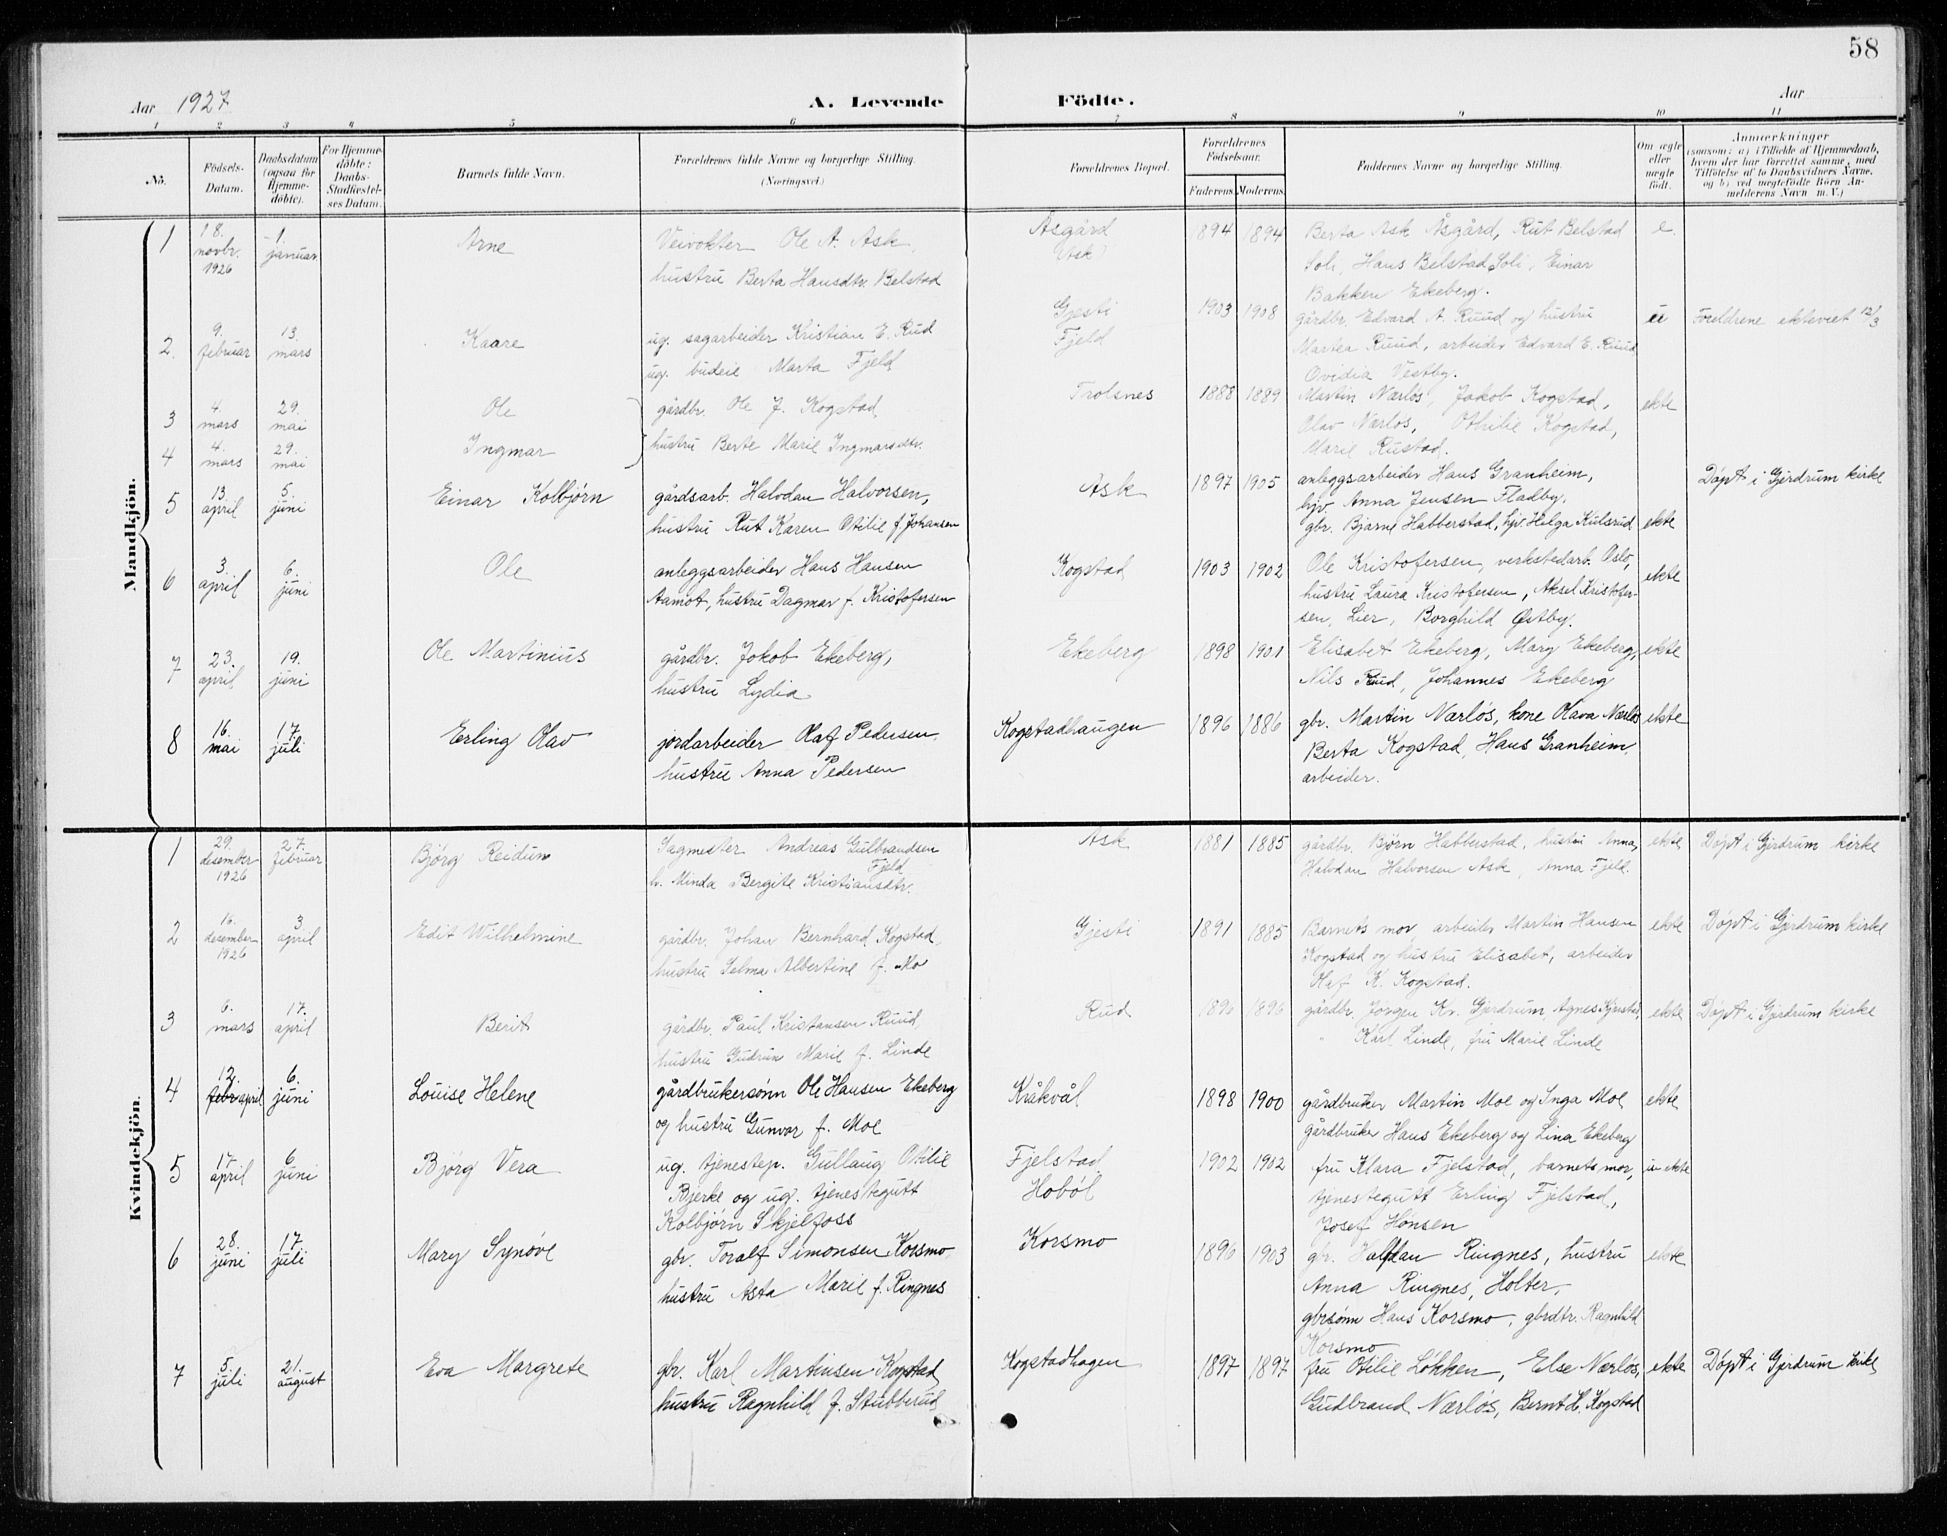 58
Aar 1927
A. Levende Födte.
Aar
1 2 3 4 5 6 7 8 9 10 11
No.
Födsels-Datum.
Daabsdatum (ogsaa for Hjemme-döbte).
For Hjemme-döbte: Daabs-Stadfæstel-ses Datum.
Barnets fulde Navn.
Forældrenes fulde Navne og borgerlige Stilling. (Næringsvei.)
Forældrenes Bopæl.
Forældrenes Födselsaar.
Faderens. Moderens.
Faddernes Navne og borgerlige Stilling.
Om ægte eller uægte födt.
Anmærkninger
(saasom: a) i Tilfælde af Hjemmedaab, hvem der har forrettet samme, med Tilföielse af to Daabsvidners Navne, og b) ved uægtefödte Börn An-melderens Navn m. V.)
Mandkjön.
1 18. novbr. 1926 1. januar Arne Veivokter Ole A. Ask Åsgård 1894 1894 Berta Ask Åsgård, Rut Belstad e.
hustru Berta Hansdtr. Belstad (Ask) Soli, Hans Belstad Soli, Einar
Bakken Ekeberg.
2. 9. februar 13. mars Kaare ug. sagarbeider Kristian E. Rud Gjesti 1903 1908 gårdbr. Edvard A. Ruud og hustru u Foreldrene ekteviet 12/3
ug. budeie Marta Fjeld Fjeld Martea Ruud, arbeider Edvard E. Ruud,
Ovidia Vestby.
3 4. mars 29. mai Ole gårdbr. Ole J. Kogstad, Trolsnes 1888 1889 Martin Nærlös, Jakob Kogstad, ekte
4 4. mars 29. mai Ingmar hustru Berte Marie Ingmarsdtr. Olav Nærlos, Othilie Kogstad,
Marie Rustad.
5 13. april 5. juni Einar Kolbjørn gårdsarb. Halvdan Halvorsen, Ask 1897 1905 anleggsarbeider Hans Granheim, Døpt i Gjerdrum kirke
hustru Rut Karen Otilie f. Johansen hjv. Anna Jensen Fladby.
gbr. Bjarne Habberstad, hjv. Helga Kulsrud ekte
6 3. april 6. juni Ole anleggsarbeider Hans Hansen Kogstad 1903 1902 Ole Kristofersen, verkstedarb. Oslo, ekte
Aamot, hustru Dagmar f. Kristofersen hustru Laura Kristofersen, Aksel Kristofer-
sen, Lier, Borghild Østby.
7 23. april 19. juni Ole Martinius gårdbr. Jakob Ekeberg, Ekeberg 1898 1901 Elisabet Ekeberg, Mary Ekeberg, ekte
hustru Lydia Nils Ruud, Johannes Ekeberg
8 16. mai 17. juli Erling Olav jordarbeider Olaf Pedersen, Kogstadhaugen 1896 1886 gbr. Martin Nærlös, kone Olava Nærlös ekte
hustru Anna Pedersen Berta Kogstad, Hans Granheim,
arbeider.
Kvindekjön.
1 29. desember 1926 27. februar Björg Reidun Sagmester Andreas Gulbrandsen Ask 1881 1885 gårdbr. Björn Habberstad, hustru Anna, ekte Döpt i Gjerdrum kirke
Fjeld
h. Minda Bergite Kristiansdtr. Halvdan Halvorsen Ask, Anna Fjeld.
2 16. desember 1926 3. april Edit Wilhelmine gårdbr. Johan Bernhard Kogstad Gjesti 1891 1885 Barnets mor, arbeider Martin Hansen ekte Döpt i Gjerdrum kirke
hustru Selma Albertine f. Mo Kogstad og hustru Elisabet, arbeider
Olaf K. Kogstad.
3 6. mars 17. april Berit gårdbr. Paul Kristiansen Ruud, Rud 1896 1896 gårdbr. Jörgen Kr. Gjerdrum, Agnes ekte Döpt i Gjerdrum kirke
hustru Gudrun Marie f. Linde " Karl Linde, fru Marie Linde
4 12. febr april 6. juni Louise Helene gårdbrukersønn Ole Hansen Ekeberg Kråkvål 1898 1900 gårdbruker Martin Moe og Inga Moe ekte
og hustru Gunvor f. Moe gårdbruker Hans Ekeberg og Lina Ekeberg
5 17. april 6 juni Bjørg Vera ug. tjenestep. Gullaug Otilie Fjelstad 1902 1902 fru Klara Fjelstad, barnets mor, u ekte
Bjerke og ug. tjenestegutt Hobøl tjenestegutt Erling Fjelstad,
Kolbjørn Skjelfoss Josef Hønsen
6 28. juni 17. juli Mary Synøve gbr. Toralf Simonsen Korsmo Korsmo 1896 1903 gbr. Halfdan Ringnes, hustru ekte
hustru Asta Marie f. Ringnes Anna Ringnes, Holter,
gbrsønn Hans Korsmo, gbrdtr. Ragnhild
Korsmo
7 5. juli 21. august Eva Margrete gbr. Karl Martinsen Kogstad Kogstadhagen 1897 1897 fru Otilie Løkken, Else Nærlös, ekte Døpt i Gjerdrum kirke
hustru Ragnhild f. Stubberud Gudbrand Nærlös, Bernt H. Kogstad